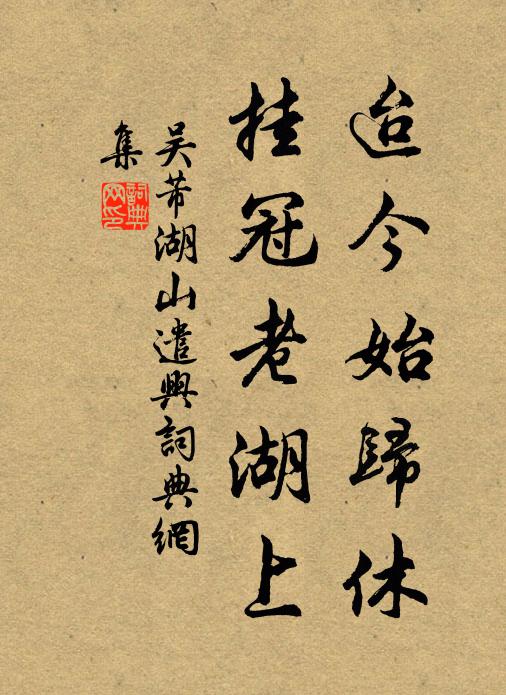 迨今始歸休
挂冠老湖上
吴芾湖山遣興詞典網
集
詞典
网印